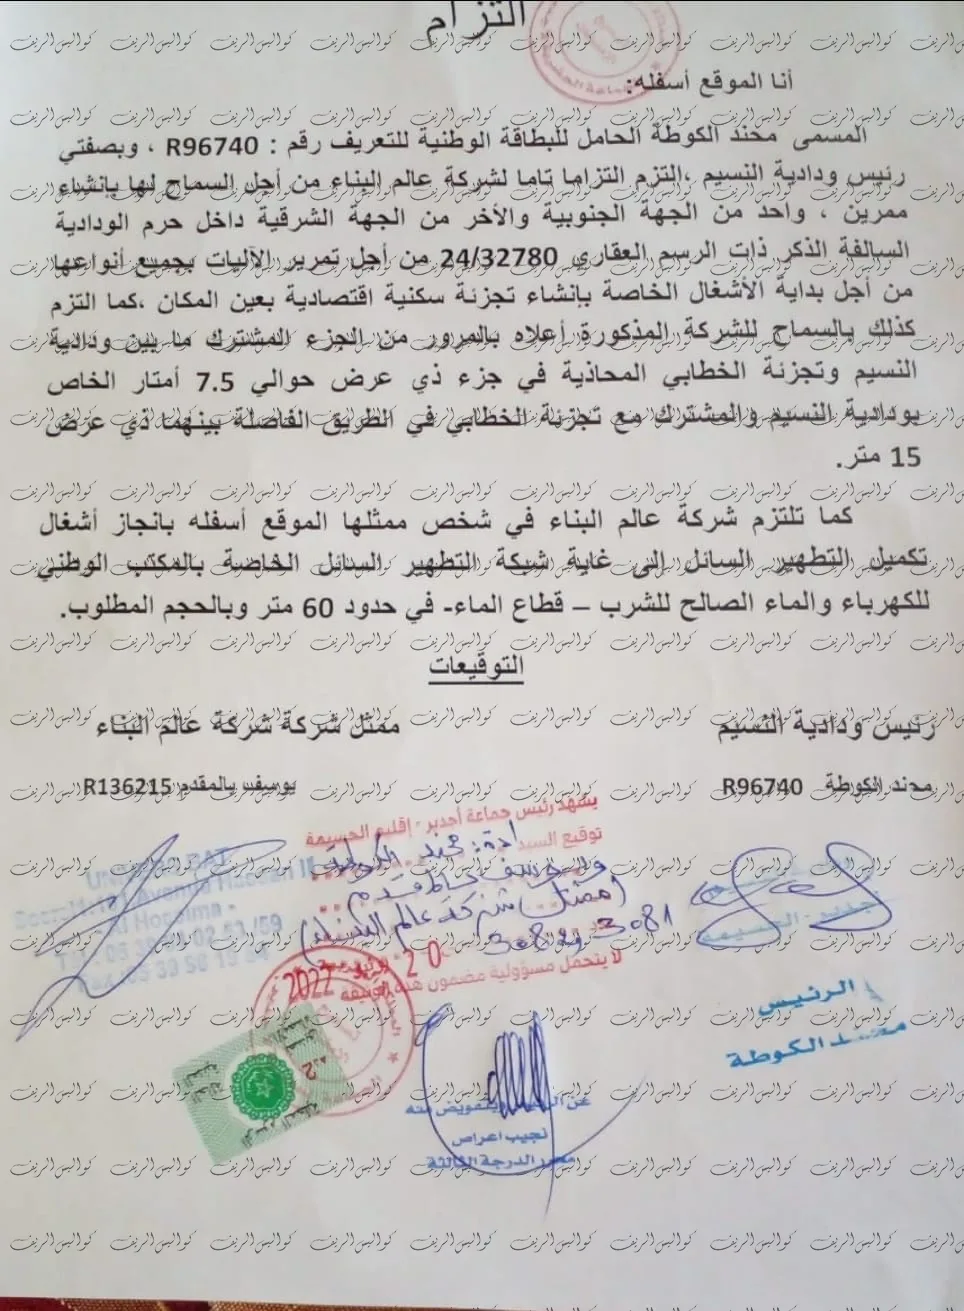 التزام
أنا الموقع أسفله:
المسمى محند الكوطة الحامل للبطاقة الوطنية للتعريف رقم : R96740 ، وبصفتي
رئيس ودادية النسيم ،التزم التزاما تاما لشركة عالم البناء من أجل السماح لها بإنشاء
ممرين ، واحد من الجهة الجنوبية والأخر من الجهة الشرقية داخل حرم الودادية
السالفة الذكر ذات الرسم العقاري 24/32780 من أجل تمرير الآليات بجميع أنواعها
من أجل بداية الأشغال الخاصة بإنشاء تجزئة سكنية اقتصادية بعين المكان ،كما التزم
كذلك بالسماح للشركة المذكورة أعلاه بالمرور من الجزء المشترك ما بين ودادية
النسيم وتجزئة الخطابي المحاذية في جزء ذي عرض حوالي 7.5 أمتار الخاص
بودادية النسيم والمشترك مع تجزئة الخطابي في الطريق الفاصلة بينهما ذي عرض
15 متر.
كما تلتزم شركة عالم البناء في شخص ممثلها الموقع أسفله بانجاز أشغال
تكميل التطهير السائل إلى غاية شبكة التطهير السائل الخاصة بالمكتب الوطني
للكهرباء والماء الصالح للشرب – قطاع الماء- في حدود 60 متر وبالحجم المطلوب.
التوقيعات
رئيس ودادية النسيم
ممثل شركة شركة عالم البناء
محند الكوطة R96740
يوسف بالمقدم R136215
يشهد رئيس جماعة أجدير - إقليم الحسيمة
توقيع السيد
محند الكوطة
ويوسف بالمقدم
(ممثل شركة عالم البناء)
3081 و 3082
20
2022
لا يتحمل مسؤولية مضمون هذه الوثيقة
Avenue Hassan II
Al Hoceima -
الرئيس
محند الكوطة
عن الرئيس وبتفويض منه
نجيب اعراص
محرر الدرجة الثالثة
كواليس الريف